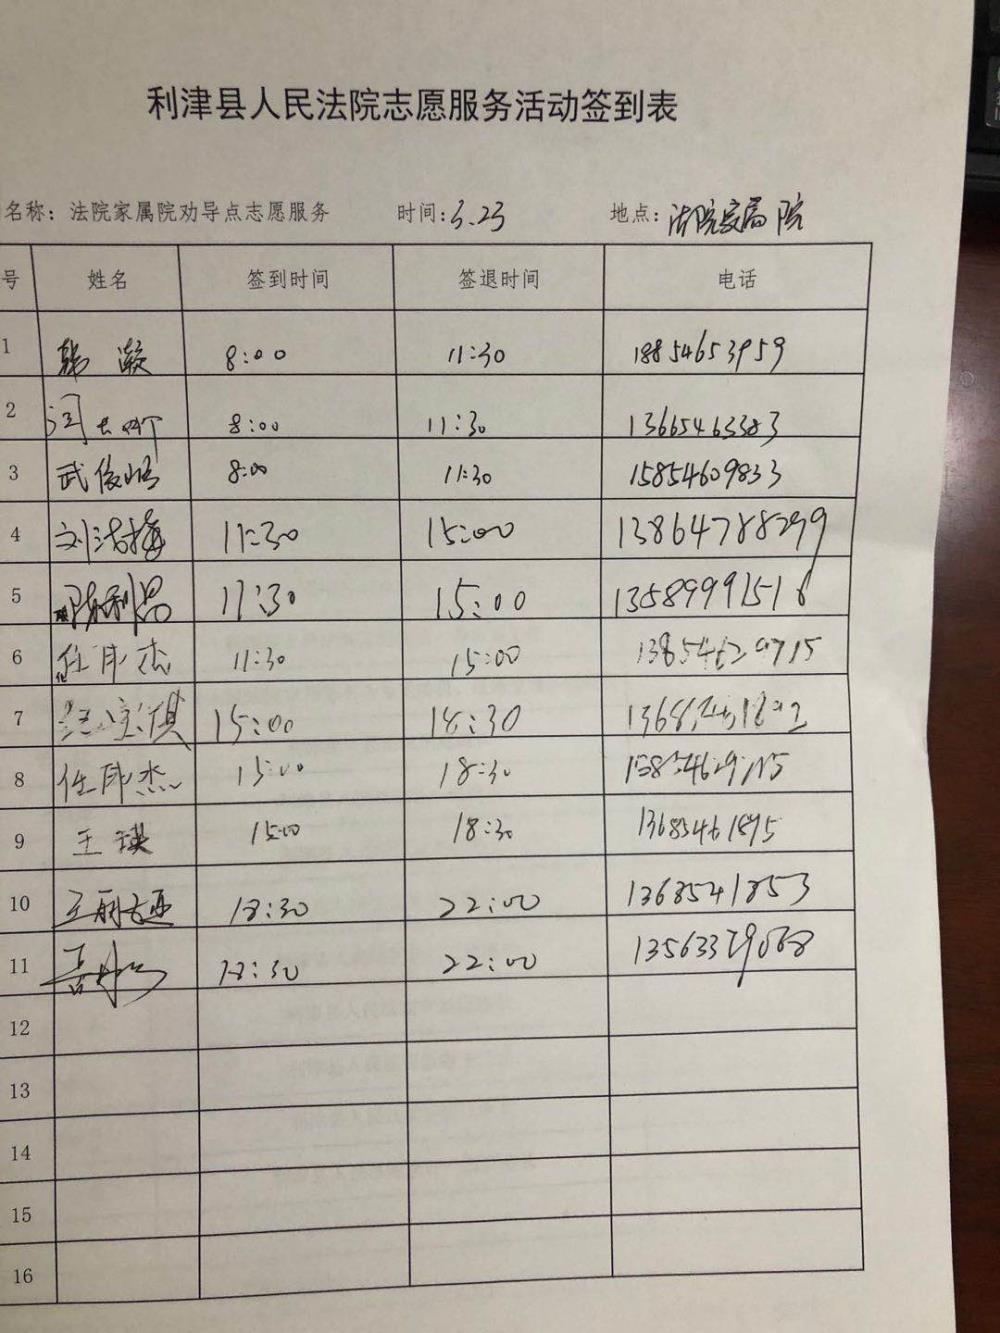 利津县人民法院志愿服务活动签到表
名称：法院家属院劝导点志愿服务 时间：3.23 地点：法院家属院
号 姓名 签到时间 签退时间 电话
1 韩 8:00 11:30 18854653959
2 8:00 11:30 13665463383
3 武俊 8:00 11:30 15854609833
4 刘洁梅 11:30 15:00 13864788299
5 陈利昌 11:30 15:00 13589991516
6 任 杰 11:30 15:00
7 15:00 18:30
8 任 杰 15:00 18:30
9 王琪 15:00 18:30 13685461895
10 王丽 18:30 22:00 1368541853
11 18:30 22:00
12
13
14
15
16